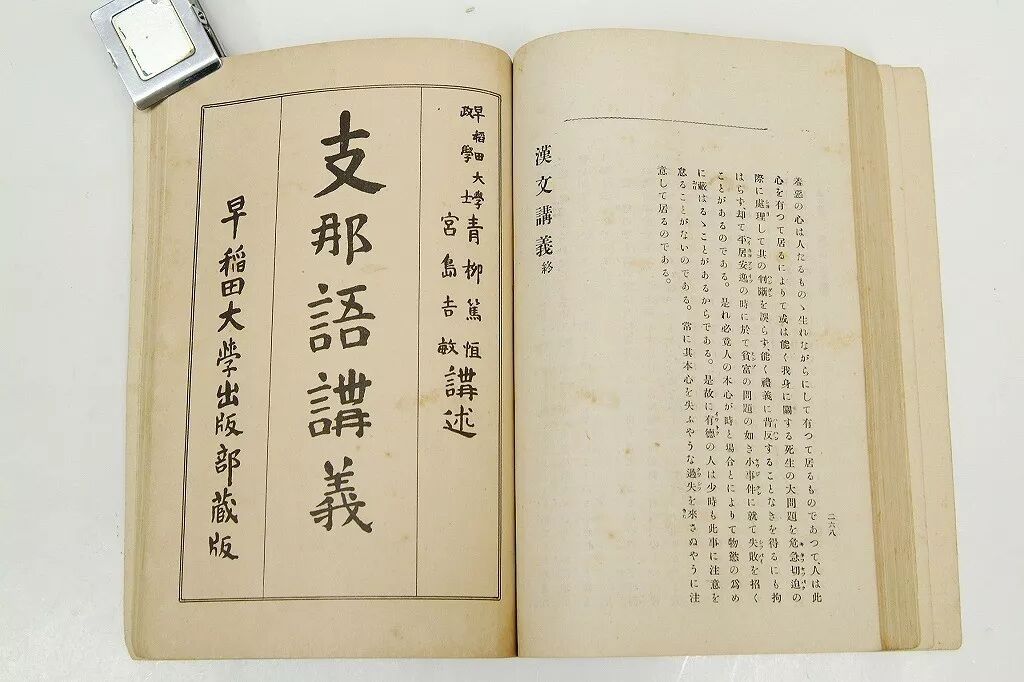 二六八
羞惡の心は人たるものゝ生れながらにして有つて居るものであつて、人は此
心を有つて居るによりて或は能く我身に關する死生の大問題を危急切迫の
際に處理して其の判斷を誤らず、能く禮義に背反することなきを得るにも拘
はらず、却て平居安逸の時に於て貧富の問題の如き小事件に就て失敗を招く
ことがあるのである。是れ必竟人の本心が時と場合とによりて物慾の爲め
に蔽はるゝことがあるからである。是故に有德の人は少時も此事に注意を
怠ることがないのである。常に其本心を失ふやうな過失を來さぬやうに注
意して居るのである。
漢文講義 終
早稻田大學
政學士 青柳篤恒
宮島吉敏
講述
支那語講義
早稲田大學出版部蔵版